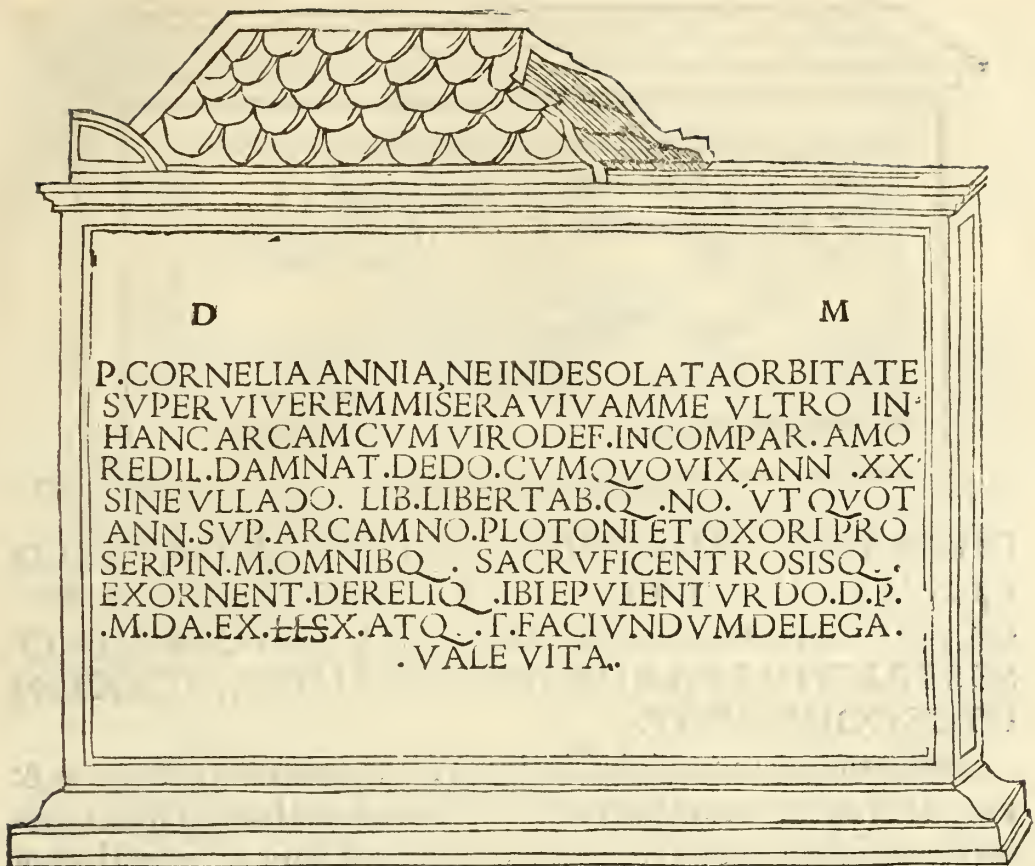 D M
P.CORNELIA ANNIA,NE IN DESOLATA ORBITATE
SVPERVIVEREM MISERA VIVAM ME VLTRO IN
HANC ARCAM CVM VIRO DEF.INCOMPAR. AMO
RE DIL.DAMNAT.DEDO.CVM QVO VIX ANN .XX
SINE VLLA ƆO. LIB.LIBERTAB.Q .NO. VT QVOT
ANN.SVP.ARCAM NO.PLOTONI ET OXORI PRO
SERPIN.M.OMNIBQ . SACRVFICENT ROSISQ .
EXORNENT.DE RELIQ .IBI EPVLENTVR DO.D.P.
.M.DA.EX. X.ATQ .T.FACIVNDVM DELEGA.
.VALE VITA.